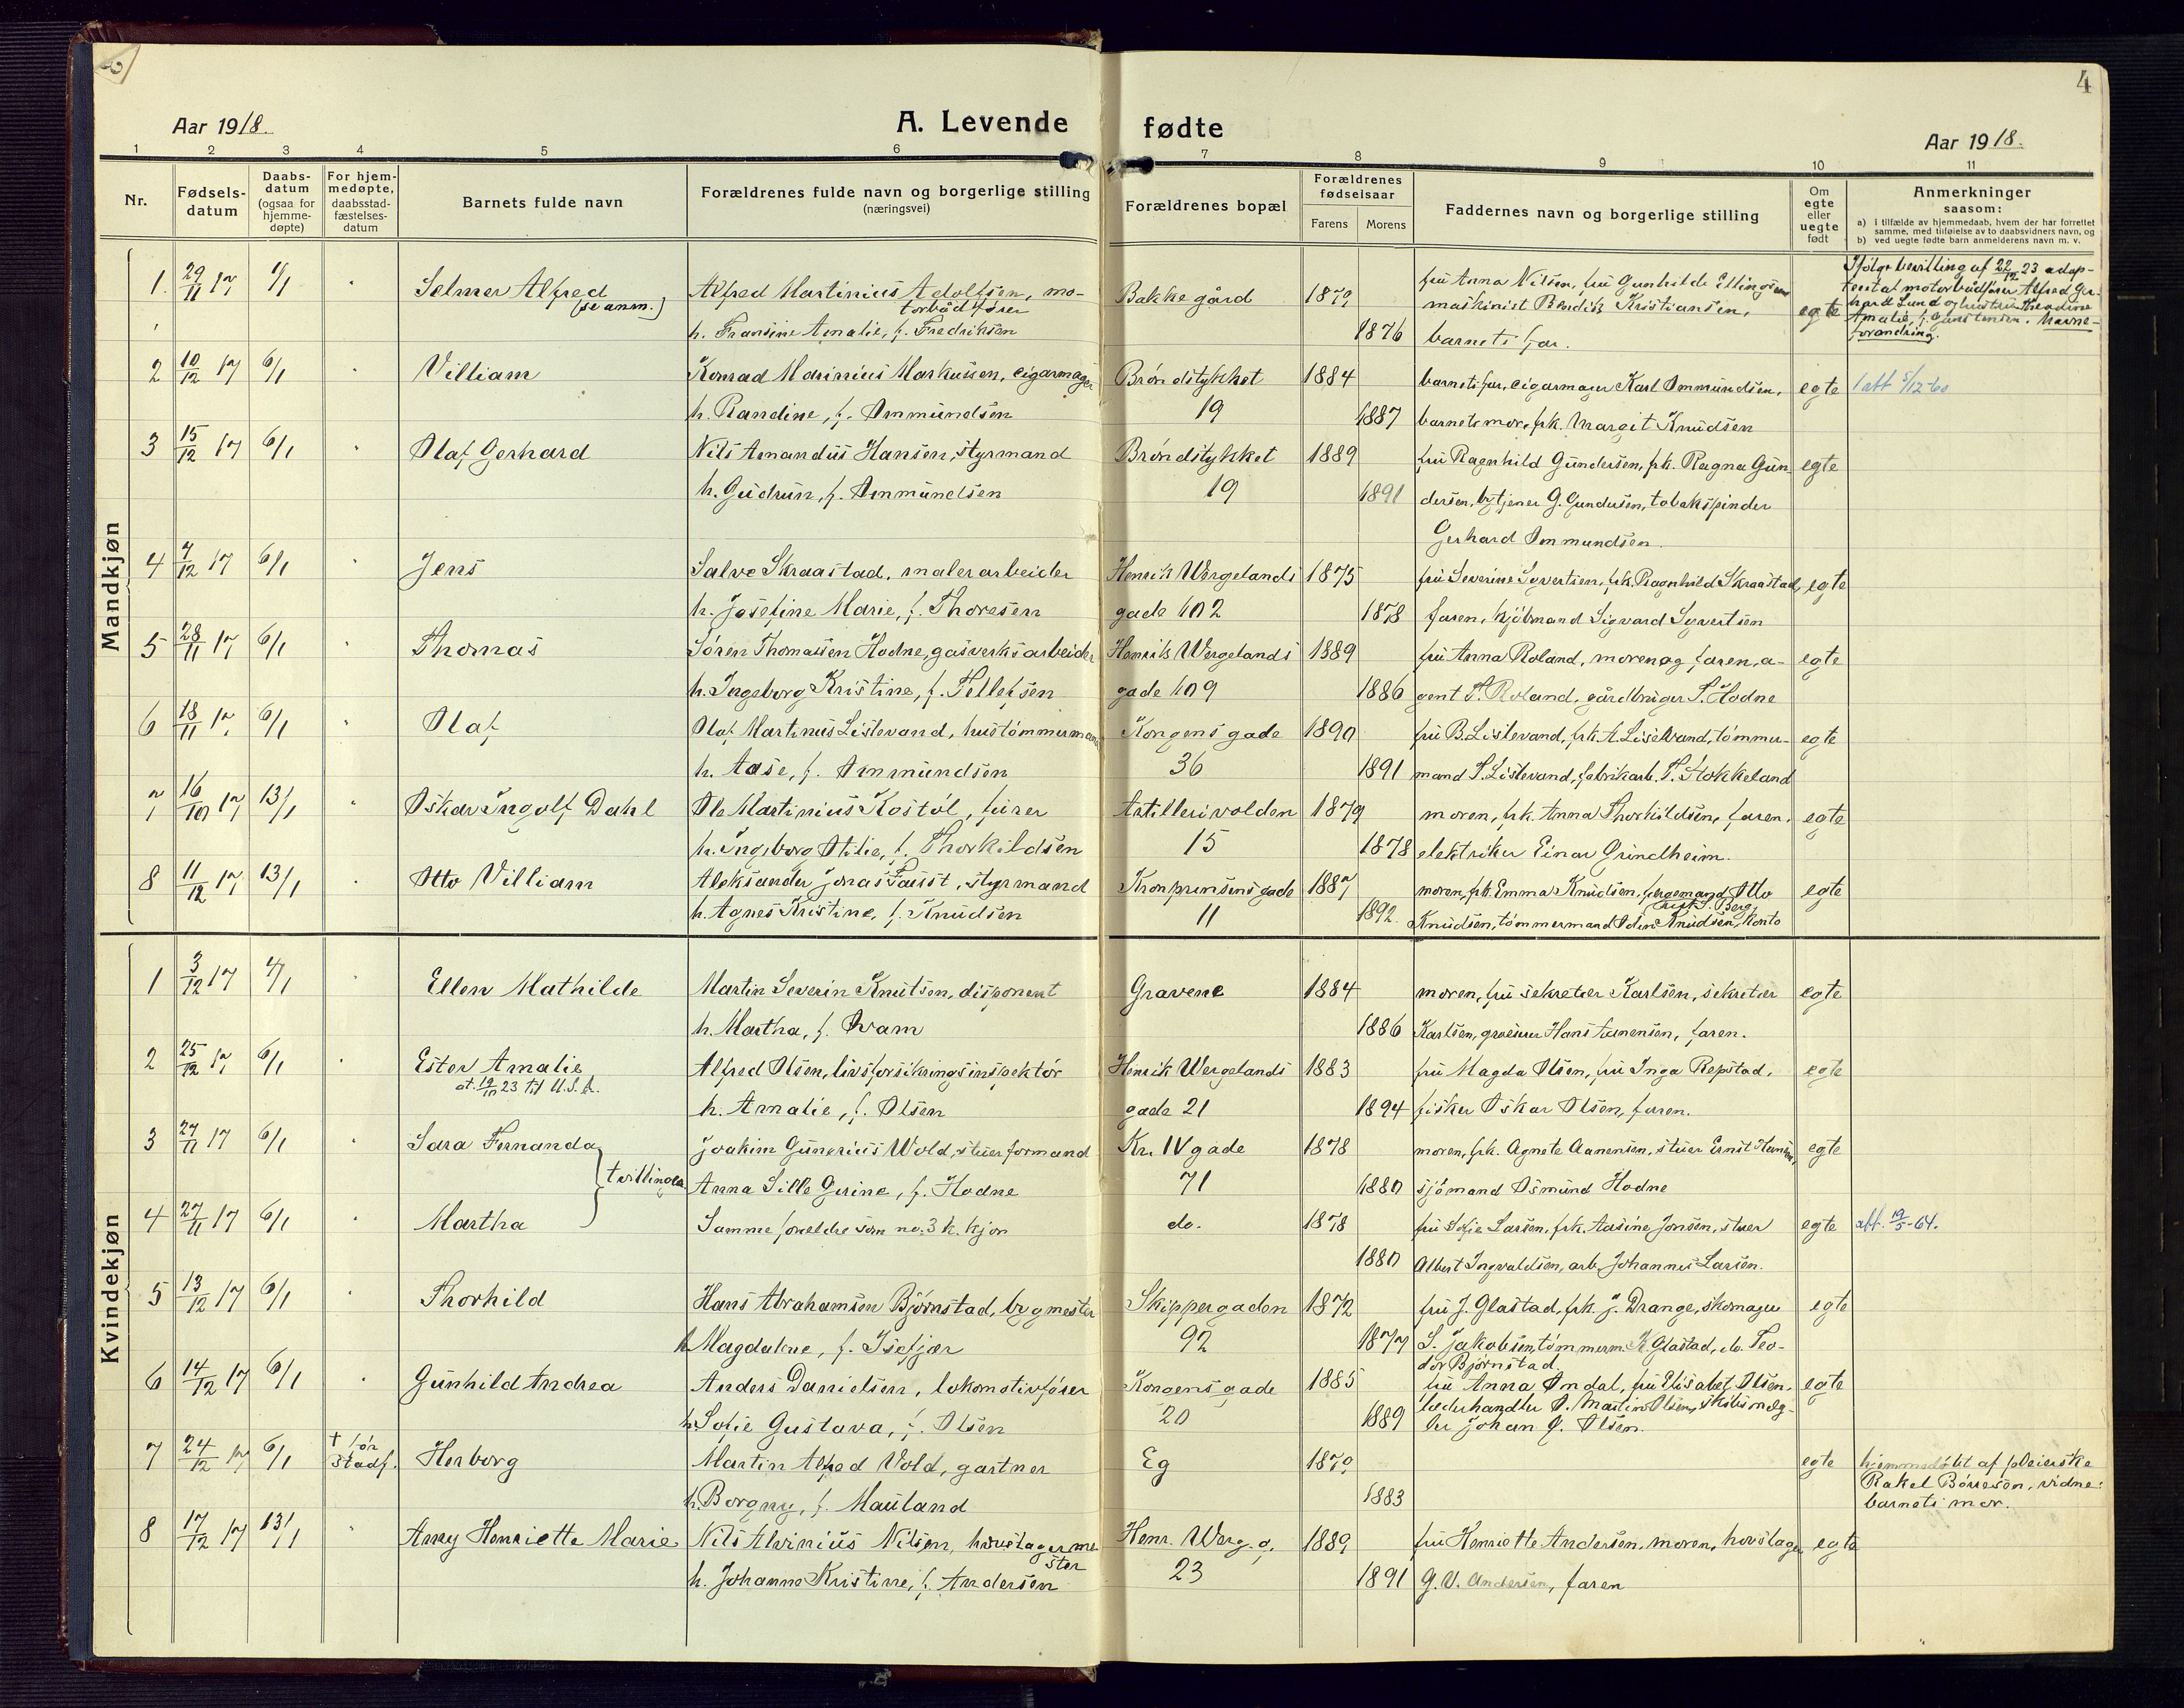 4
Aar 1918.
A. Levende fødte
Aar 1918.
1 2 3 4 5 6 7 8 9 10 11
Nr.
Fødsels-datum
Daabs-datum (ogsaa for hjemme-døpte)
For hjem-medøpte, daabsstad-fæstelses-datum
Barnets fulde navn
Forældrenes fulde navn og borgerlige stilling
(næringsvei)
Forældrenes bopæl
Forældrenes fødselsaar
Farens Morens
Faddernes navn og borgerlige stilling
Om egte eller uegte født
Anmerkninger
saasom:
a) i tilfælde av hjemmedaab, hvem der har forrettet samme, med tilføielse av to daabsvidners navn, og
b) ved uegte fødte barn anmelderens navn m. v.
Mandkjøn
1. 29/11 17 1/1 Selmer Alfred (se anm.) Alfred Martinius Adolfsen, mo- Bakkegård 1879 fru Anna Nilsen, fru Gunhilde Ellingsen egte Ifølge bevilling af 22/12 23 adop-
torbådfører maskinist Bendik Kristiansen, tert at motorbådfører Alfred Ger-
h. Fransine Amalie, f. Fredriksen 1876 barnets far. hard Lund og hustru Theodine
Amalie, f. Gunstensen. Navne-
forandring.
2 10/12 17 6/1 Villiam Konrad Marinius Markussen, cigarmager Brøndstykket 1884 barnets far, cigarmager Karl Ommundsen, egte 1 att 5/12-60
h. Randine, f. Ommundsen 19 1887 barnets mor, frk. Margit Knudsen
3 15/12 17 6/1 Olaf Gerhard Nils Amandus Hansen, styrmand Brøndstykket 1889 fru Ragnhild Gundersen, frk. Ragna Gun egte
h. Gudrun, f. Ommundsen 19 1891 dersen, bytjener G. Gundersen, tobakspinder
Gerhard Ommundsen.
4 7/12 17 6/1 Jens Salve Skraastad, malerarbeider Henrik Wergelands 1875 fru Severine Syvertsen, frk. Ragnhild Skraastad, egte
h. Josefine Marie, f. Thoresen gade 102 1878 faren, kjøbmand Sigvard Syvertsen
5 28/11 17 6/1 Thomas Søren Thomassen Hodne, gasverksarbeider Henrik Wergelands 1889 fru Anna Roland, moren og faren, a- egte
h. Ingeborg Kristine, f. Tellefsen gade 109 1886 gent T. Roland, gårdbruger T. Hodne
6 18/11 17 6/1 Olaf Olaf Martinus Listevand, hustømmermand Kongensgade 1890 fru B. Listevand, frk. A. Listevand, tømmer- egte
h. Aase, f. Ommundsen 36 1891 mand T. Listevand, fabrikarb. T. Stokkeland
7 16/10 17 13/1 Oskar Ingolf Dahl Ole Martinius Kostøl, furer Artillerivolden 1879 moren, frk. Anna Thorkildsen, faren, egte
h. Ingeborg Otilie, f. Thorkildsen 15 1878 elektriker Einar Grindheim.
8 11/12 17 13/1 Otto Villiam Aleksander Jonas Taisst, styrmand Kronprinsensgade 1887 moren, frk. Emma Knudsen, færgemand Otto egte
h. Agnes Kristine, f. Knudsen 11 1892. Knudsen, tømmermand Odin Knudsen, konto
rist S. Berg.
Kvindekjøn
1 3/12 17 4/1 Ellen Mathilde Martin Severin Knutsen, disponent Gravene 1884 moren, fru sekretær Karlsen, sekretær egte
h. Martha, f. Kvam 1886 Karlsen, graverer Hans Aanensen, faren.
2 25/12 17 6/1 Ester Amalie Alfred Olsen, livsforsikringsinspektør Henrik Wergelands 1883 fru Magda Olsen, fru Inga Repstad, egte
at. 19/10 23 til U.S.A. h. Amalie, f. Olsen gade 21 1894 fisker Oskar Olsen, faren.
3 27/11 17 6/1 Sara Fernanda Joakim Gunerius Wold, stuerformand Kr. IV gade 1878 moren, frk. Agnete Aanensen, stuer Ernst Hansen, egte
tvillinger Anna Sille Gurine, f. Hodne 71 1880 sjømand Osmund Hodne
4 27/11 17 6/1 Martha Samme forældre som no. 3 k. kjøn do. 1878 fru Sofie Larsen, frk. Aasine Jonsen, stuer egte att. 19/5-64.
1880 Albert Ingvaldsen, arb. Johannes Larsen.
5 13/12 17 6/1 Thorhild Hans Abrahamsen Bjørnstad, bygmester Skippergaden 1872 fru J. Glastad, frk. J. Drange, skomager egte
h Magdalene, f. Isefjær 92 1877 S. Jakobsen, tømmerm. K. Glastad, do. Teo-
dor Bjørnstad.
6 14/12 17 6/1 Gunhild Andrea Anders Danielsen, lokomotivfører Kongensgade 1885 fru Anna Omdal, fru Elisabet Olsen, egte
h Sofie Gustava, f. Olsen 20 1889 læderhandler O. Martin Olsen, skibsmæg-
ler Johan G. Olsen.
7 24/12 17 6/1 † før stadf. Herborg Martin Alfred Vold, gartner Eg 1879 egte hjemmedøbt af pleierske
h Borgny, f. Mauland 1883 Rakel Børresen, vidne:
barnets mor.
8 17/12 17 13/1 Anny Henriette Marie Nils Alvinius Nilsen, hovslagerme Henr. Werg. g. 1889 fru Henriette Andersen, moren, hovslager egte
ster
h. Johanne Kristine, f. Andersen 23 1891 G. V. Andersen, faren